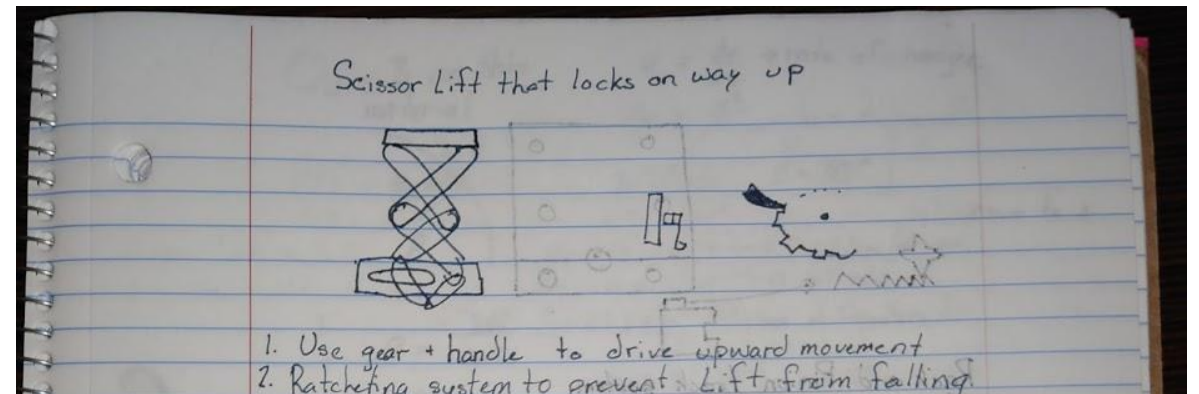 Scissor Lift that locks on way up
1. Use gear + handle to drive upward movement
2. Ratcheting system to prevent Lift from falling